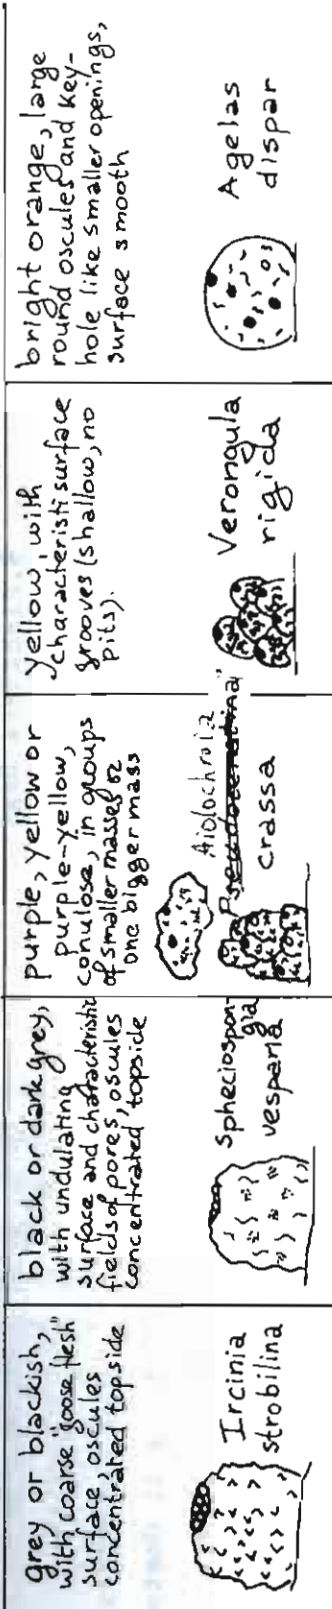 grey or blackish,
with coarse "goose flesh"
surface, oscules
concentrated topside
Ircinia
strobilina
black or dark grey,
with undulating
surface and characteristic
fields of pores, oscules
concentrated topside
Spheciospon-
gia
vesparia
purple, yellow or
purple-yellow,
conulose, in groups
of smaller masses or
one bigger mass
Aiolochroia
"Pseudoceratina"
crassa
yellow, with
characteristi surface
grooves (shallow, no
pits).
Verongula
rigida
bright orange, large
round oscules and key-
hole like smaller openings,
surface smooth
Agelas
dispar